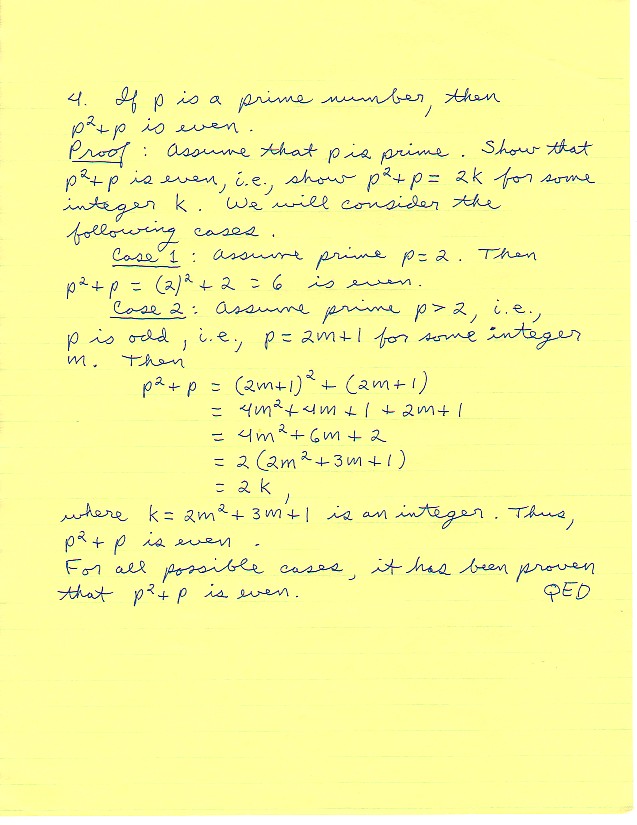 4. If p is a prime number, then
p²+p is even.
Proof : Assume that p is prime. Show that
p²+p is even, i.e., show p²+p = 2k for some
integer k. We will consider the
following cases.
Case 1 : Assume prime p=2. Then
p²+p = (2)²+2 = 6 is even.
Case 2 : Assume prime p>2, i.e.,
p is odd, i.e., p=2m+1 for some integer
m. Then
p²+p = (2m+1)² + (2m+1)
= 4m²+4m+1+2m+1
= 4m²+6m+2
= 2(2m²+3m+1)
= 2k,
where k=2m²+3m+1 is an integer. Thus,
p²+p is even.
For all possible cases, it has been proven
that p²+p is even. QED